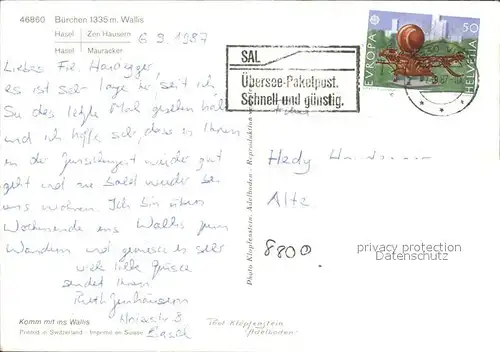 46860 Bürchen 1335 m. Wallis
Hasel Zen Hausern
Hasel Mauracker
6.9.1987
Liebes Frl.
es ist sehr lange her, seit ich
Sie das letzte Mal gesehen habe
und ich hoffe sehr, dass es Ihnen
in der Zwischenzeit wieder gut
geht und Sie bald wieder bei
uns wohnen. Ich bin übers
Wochenende ins Wallis zum
Wandern und geniesse es sehr
viele liebe Grüsse
sendet Ihnen
Ruth
Basel
Komm mit ins Wallis
Printed in Switzerland - Imprimé en Suisse
Photo Klopfenstein, Adelboden - Reproduction
SAL
Übersee-Paketpost.
Schnell und günstig.
EUROPA
50
HELVETIA
Hedy
8800
privacy protection
Datenschutz
Phot. Klopfenstein
Adelboden